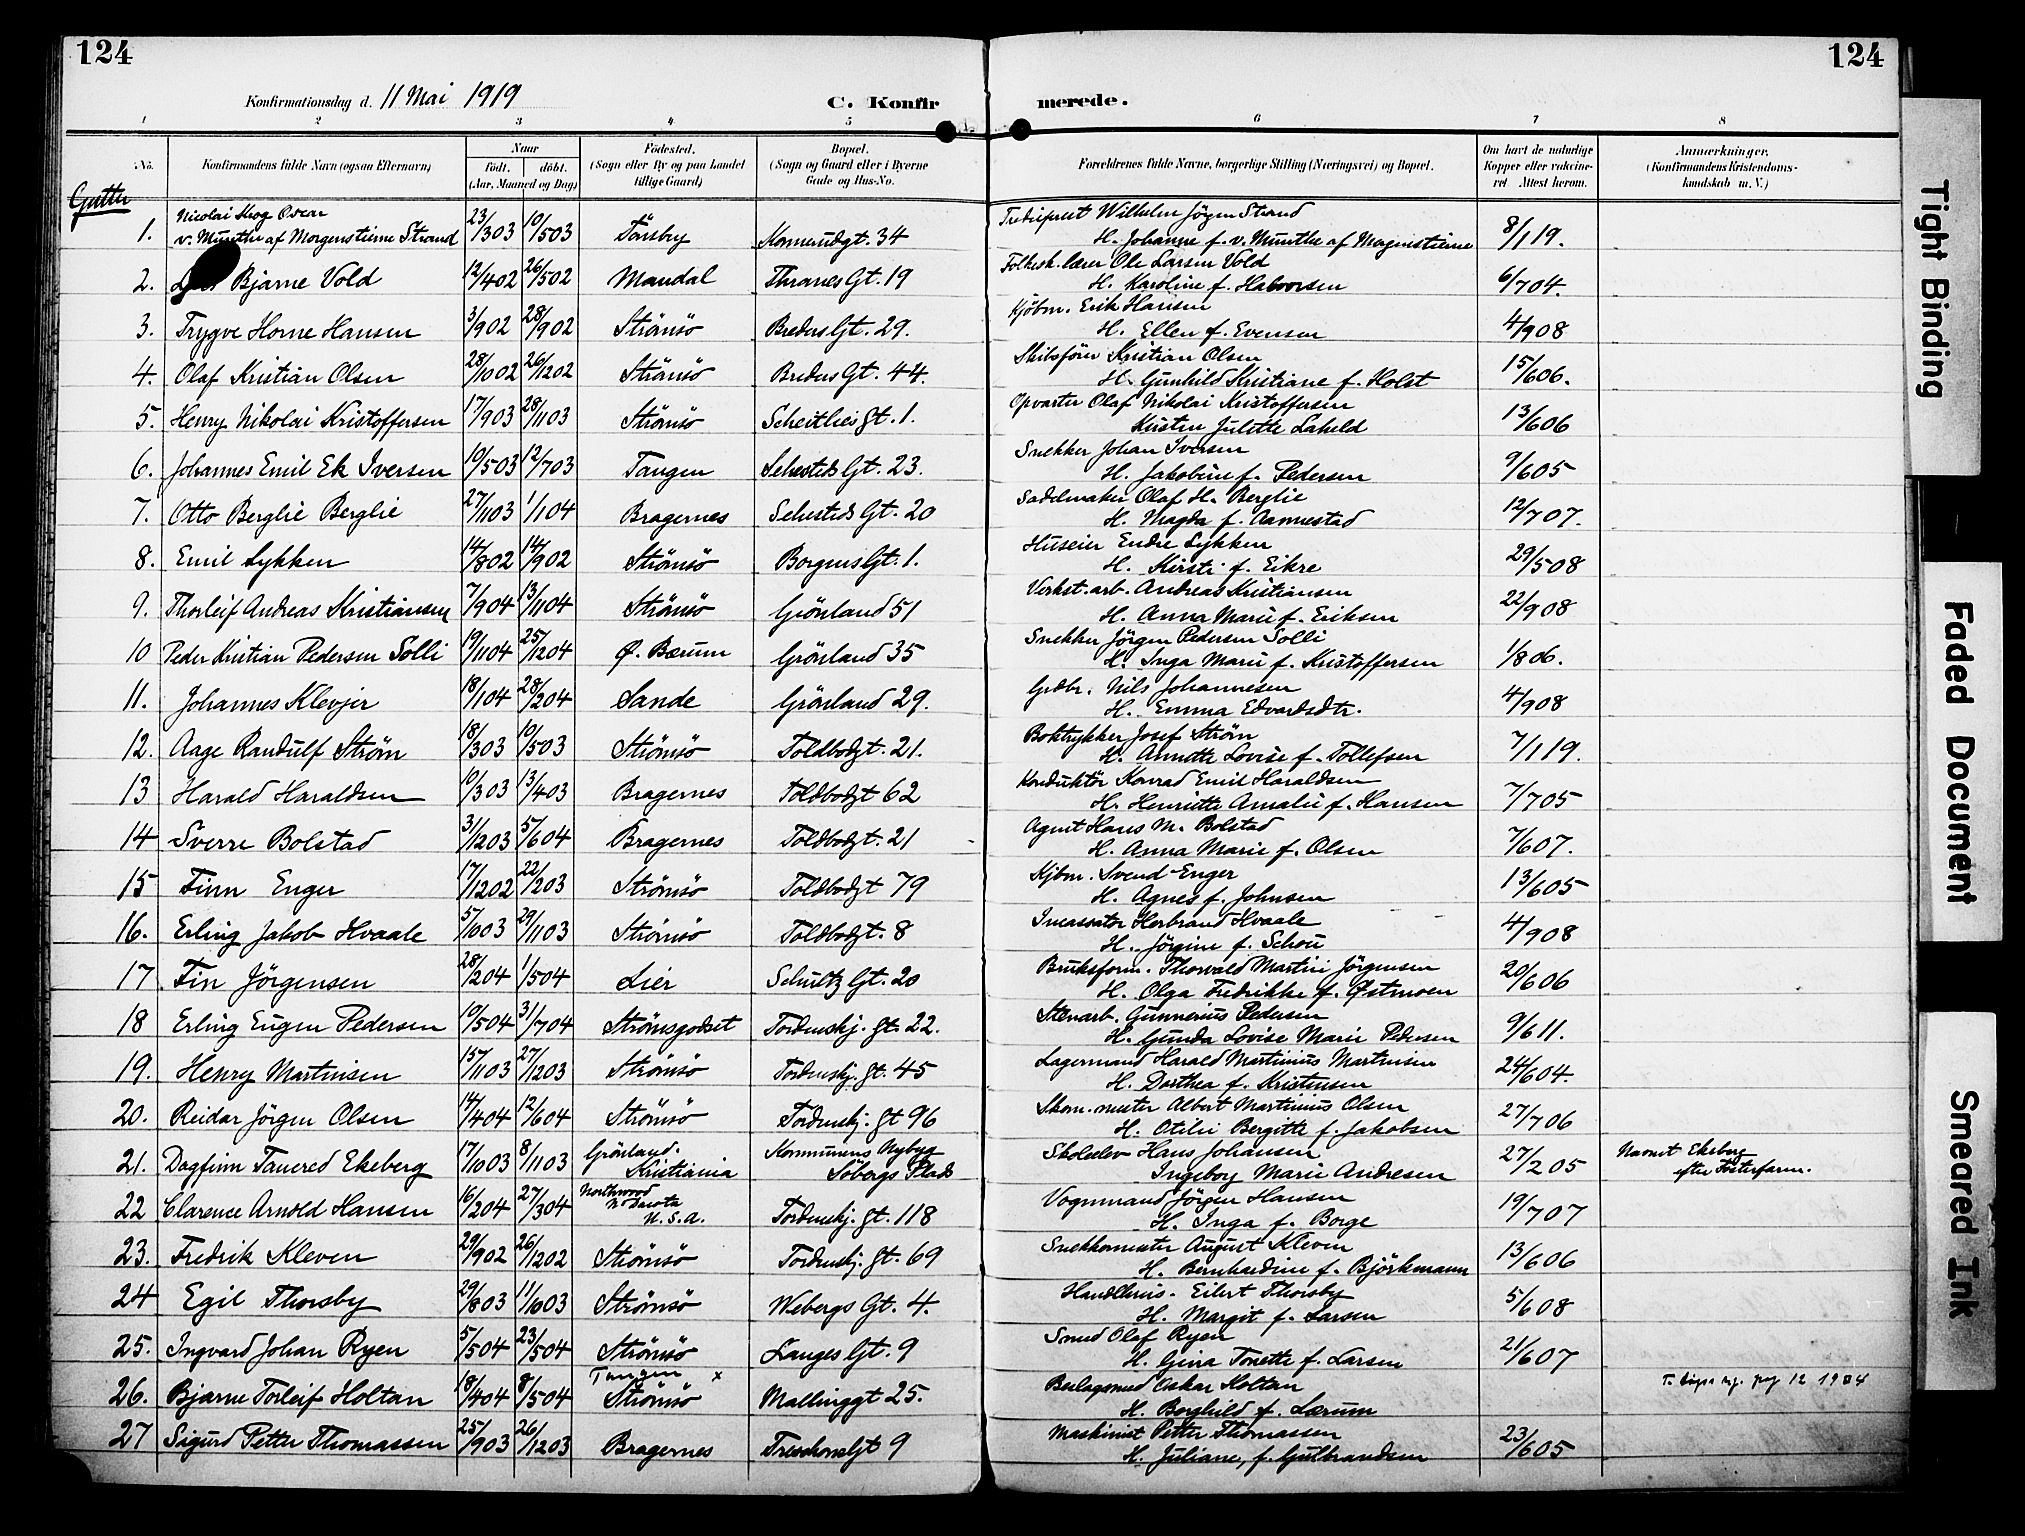 124
124
Konfirmationsdag d. 11 Mai 1919
C. Konfir merede.
1 2 3 4 5 6 7 8
No.
Konfirmandens fulde Navn (ogsaa Efternavn)
Naar
født. døbt.
(Aar, Maaned og Dag)
Fødested.
(Sogn eller By og paa Landet
tillige Gaard)
Bopæl.
(Sogn og Gaard eller i Byerne
Gade og Hus-No.
Forældrenes fulde Navne, borgerlige Stilling (Næringsvei) og Bopæl.
Om havt de naturlige
Kopper eller vakcine-
ret. Attest herom.
Anmærkninger.
(Konfirmandens Kristendoms-
kundskab m. V.)
Gutter
Nicolai Skog Oscar
1. v. Munthe af Morgenstierne Strand 23/303 10/503 Tönsby Konnerudgt. 34 Trediepræst Wilhelm Jörgen Strand
H. Johanne f. v. Munthe af Morgenstierne 8/119.
2. Bjarne Vold 12/402 26/502 Mandal Thranes Gt. 19 Folkesk.lærer Ole Larsen Vold
H. Karoline f. Halvorsen 6/704.
3. Trygve Horne Hansen 3/902 28/902 Strömsö Breders Gt. 29. Kjöbm. Erik Hansen
H. Ellen f. Evensen 4/908
4. Olaf Kristian Olsen 28/1002 26/1202 Strömsö Breders Gt. 44. Skibsförer Kristian Olsen
H. Gunhild Kristiane f. Holst 15/606.
5. Henry Nikolai Kristoffersen 17/903 28/1103 Strömsö Scheitlies gt. 1. Opvarter Olaf Nikolai Kristoffersen
Kirsten Julette Laheld 13/606
6. Johannes Emil Ek Iversen 10/503 12/703 Tangen Sehesteds Gt. 23. Snekker Johan Iversen
H. Jakobine f. Pedersen 9/605
7. Otto Berglie Berglie 27/1103 1/104 Bragernes Sehesteds Gt. 20 Sadelmaker Olaf H. Berglie
H. Magda f. Aannestad 12/707.
8. Emil Lykken 14/802 14/902 Strömsö Borgens Gt. 1. Huseier Endre Lykken
H. Kirsti f. Eikre 29/508
9. Thorleif Andreas Kristiansen 7/904 13/1104 Strömsö Grönland 51 Verkst.arb. Andreas Kristiansen
H. Anna Marie f. Eriksen 22/908
10 Peder Kristian Pedersen Solli 19/1104 25/1204 Ø. Bærum Grönland 35 Snekker Jörgen Pedersen Solli
H. Inga Marie f. Kristoffersen 1/806.
11. Johannes Klevjer 18/104 28/204 Sande Grönland 29. Grdbr. Nils Johannesen
H. Emma Edvardsdtr. 4/908
12. Aage Randulf Ström 18/303 10/503 Strömsö Toldbodgt. 21. Boktrykker Josef Ström
H. Annette Lovise f. Tollefsen 7/119.
13 Harald Haraldsen 10/303 13/403 Bragernes Toldbodgt 62 Konduktör Konrad Emil Haraldsen
H. Henriette Amalie f. Hansen 7/705
14 Sverre Bolstad 31/1203 5/604 Bragernes Toldbodgt. 21 Agent Hans M. Bolstad
H. Anna Marie f. Olsen 7/607.
15 Finn Enger 17/1202 22/203 Strömsö Toldbodgt 79 Kjbm. Svend Enger
H. Agnes f. Johnsen 13/605
16. Erling Jakob Hvaale 5/1003 29/1103 Strömsö Toldbodgt. 8 Incassator Herbrand Hvaale
H. Jörgine f. Schou 4/908
17 Fin Jörgensen 28/204 1/504 Lier Schultz Gt. 20 Bruksform. Thorvald Martin Jörgensen
H. Olga Fredrikke f. Østmoen 20/606
18 Erling Eugen Pedersen 10/504 31/704 Strömsgodset Tordenskj. gt. 22. Stenarb. Gunnerius Pedersen
H. Gunda Lovise Marie Pedersen 9/611.
19. Henry Martinsen 15/1103 27/1203 Strömsö Tordenskj. gt. 45 Lagermand Harald Martinius Martinsen
H. Dorthea f. Kristensen 24/604.
20. Reidar Jörgen Olsen 14/404 12/604 Strömsö Tordenskj. gt 96 Skom.mester Albert Martinius Olsen
H. Otilie Bergitte f. Jakobsen 27/706
21. Dagfinn Tancred Ekeberg 17/1003 8/1103 Grönland.
Kristiania Kommunens Nybyg
Söbergs Plads Skoleelev Hans Johansen
Ingeborg Marie Andresen 27/205 Navnet Ekeberg
efter Fosterfaren.
22 Clarence Arnold Hansen 16/204 27/304 Northwood
N. Dacota
U.S.A. Tordenskj. gt. 118 Vognmand Jörgen Hansen
H. Inga f. Borge 19/707
23. Fredrik Kleven 29/902 26/1202 Strömsö Tordenskj. gt. 69 Snekkermester August Kleven
H. Bernhardine f. Björkmann 13/606
24 Egil Thorsby 29/803 11/1003 Strömsö Webergs Gt. 4. Handlereis. Eilert Thorsby
H. Margit f. Larsen 5/608
25. Ingvard Johan Ryen 5/504 23/504 Strömsö Langes Gt. 9 Smed Olaf Ryen
H. Gina Tonette f. Larsen 21/607
26. Bjarne Torleif Holtan 18/404 8/504 Tangen x
Strömsö Mallinggt 25. Beslagsmed Oskar Holtan
H. Borghild f. Lærum 1904
27 Sigurd Petter Thomassen 25/903 26/1203 Bragernes Treschows Gt 9 Maskinist Petter Thomassen
H. Juliane, f. Gulbrandsen 23/605
Tight Binding
Faded Document
Smeared Ink